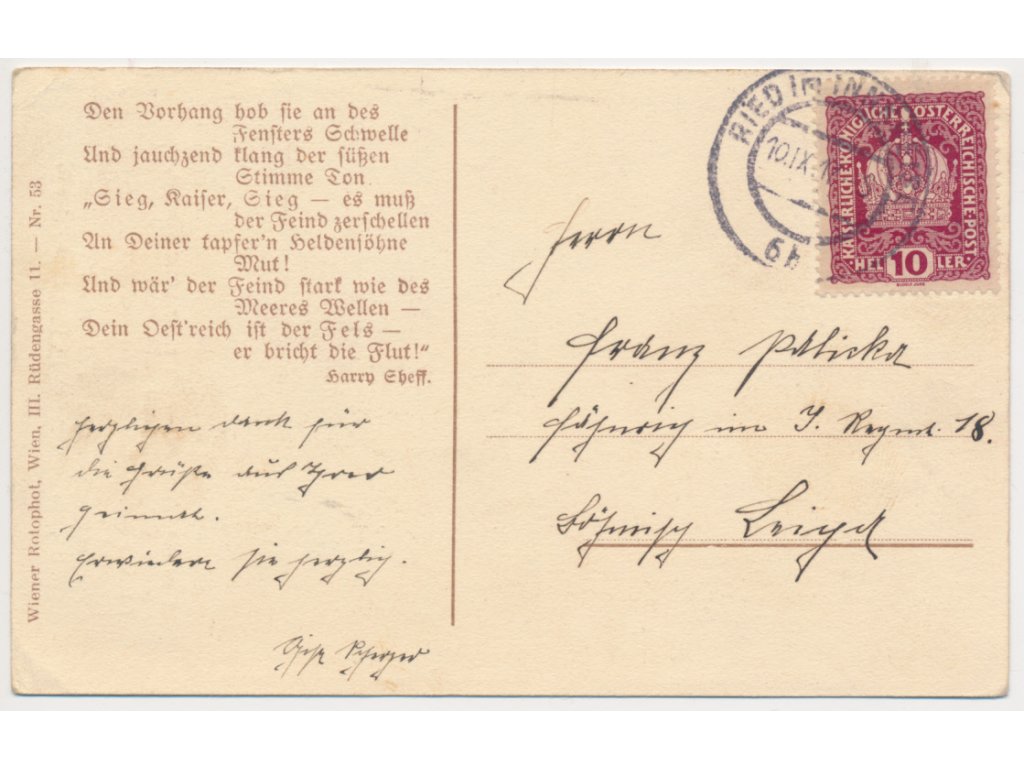 Den Vorhang hob sie an des
Fensters Schwelle
Und jauchzend klang der süßen
Stimme Ton
„Sieg, Kaiser, Sieg — es muß
der Feind zerschellen
An Deiner tapfer'n Heldensöhne
Mut!
Und wär' der Feind stark wie des
Meeres Wellen —
Dein Oest'reich ist der Fels —
er bricht die Flut!"
Harry Sheff.
Wiener Rotophot, Wien, III. Rüdengasse 11. — Nr. 53
herzlichen Dank für
die Grüße aus Ihrer
Heimath.
Erwiedere sie herzlich.
RIED IM INN
10.IX.
49
KAISERLICHE KÖNIGLICHE ÖSTERREICHISCHE POST
HELLER
10
Herrn
Franz Palicka
Fähnrich im I. Regmt. 18.
Böhmisch Leipa